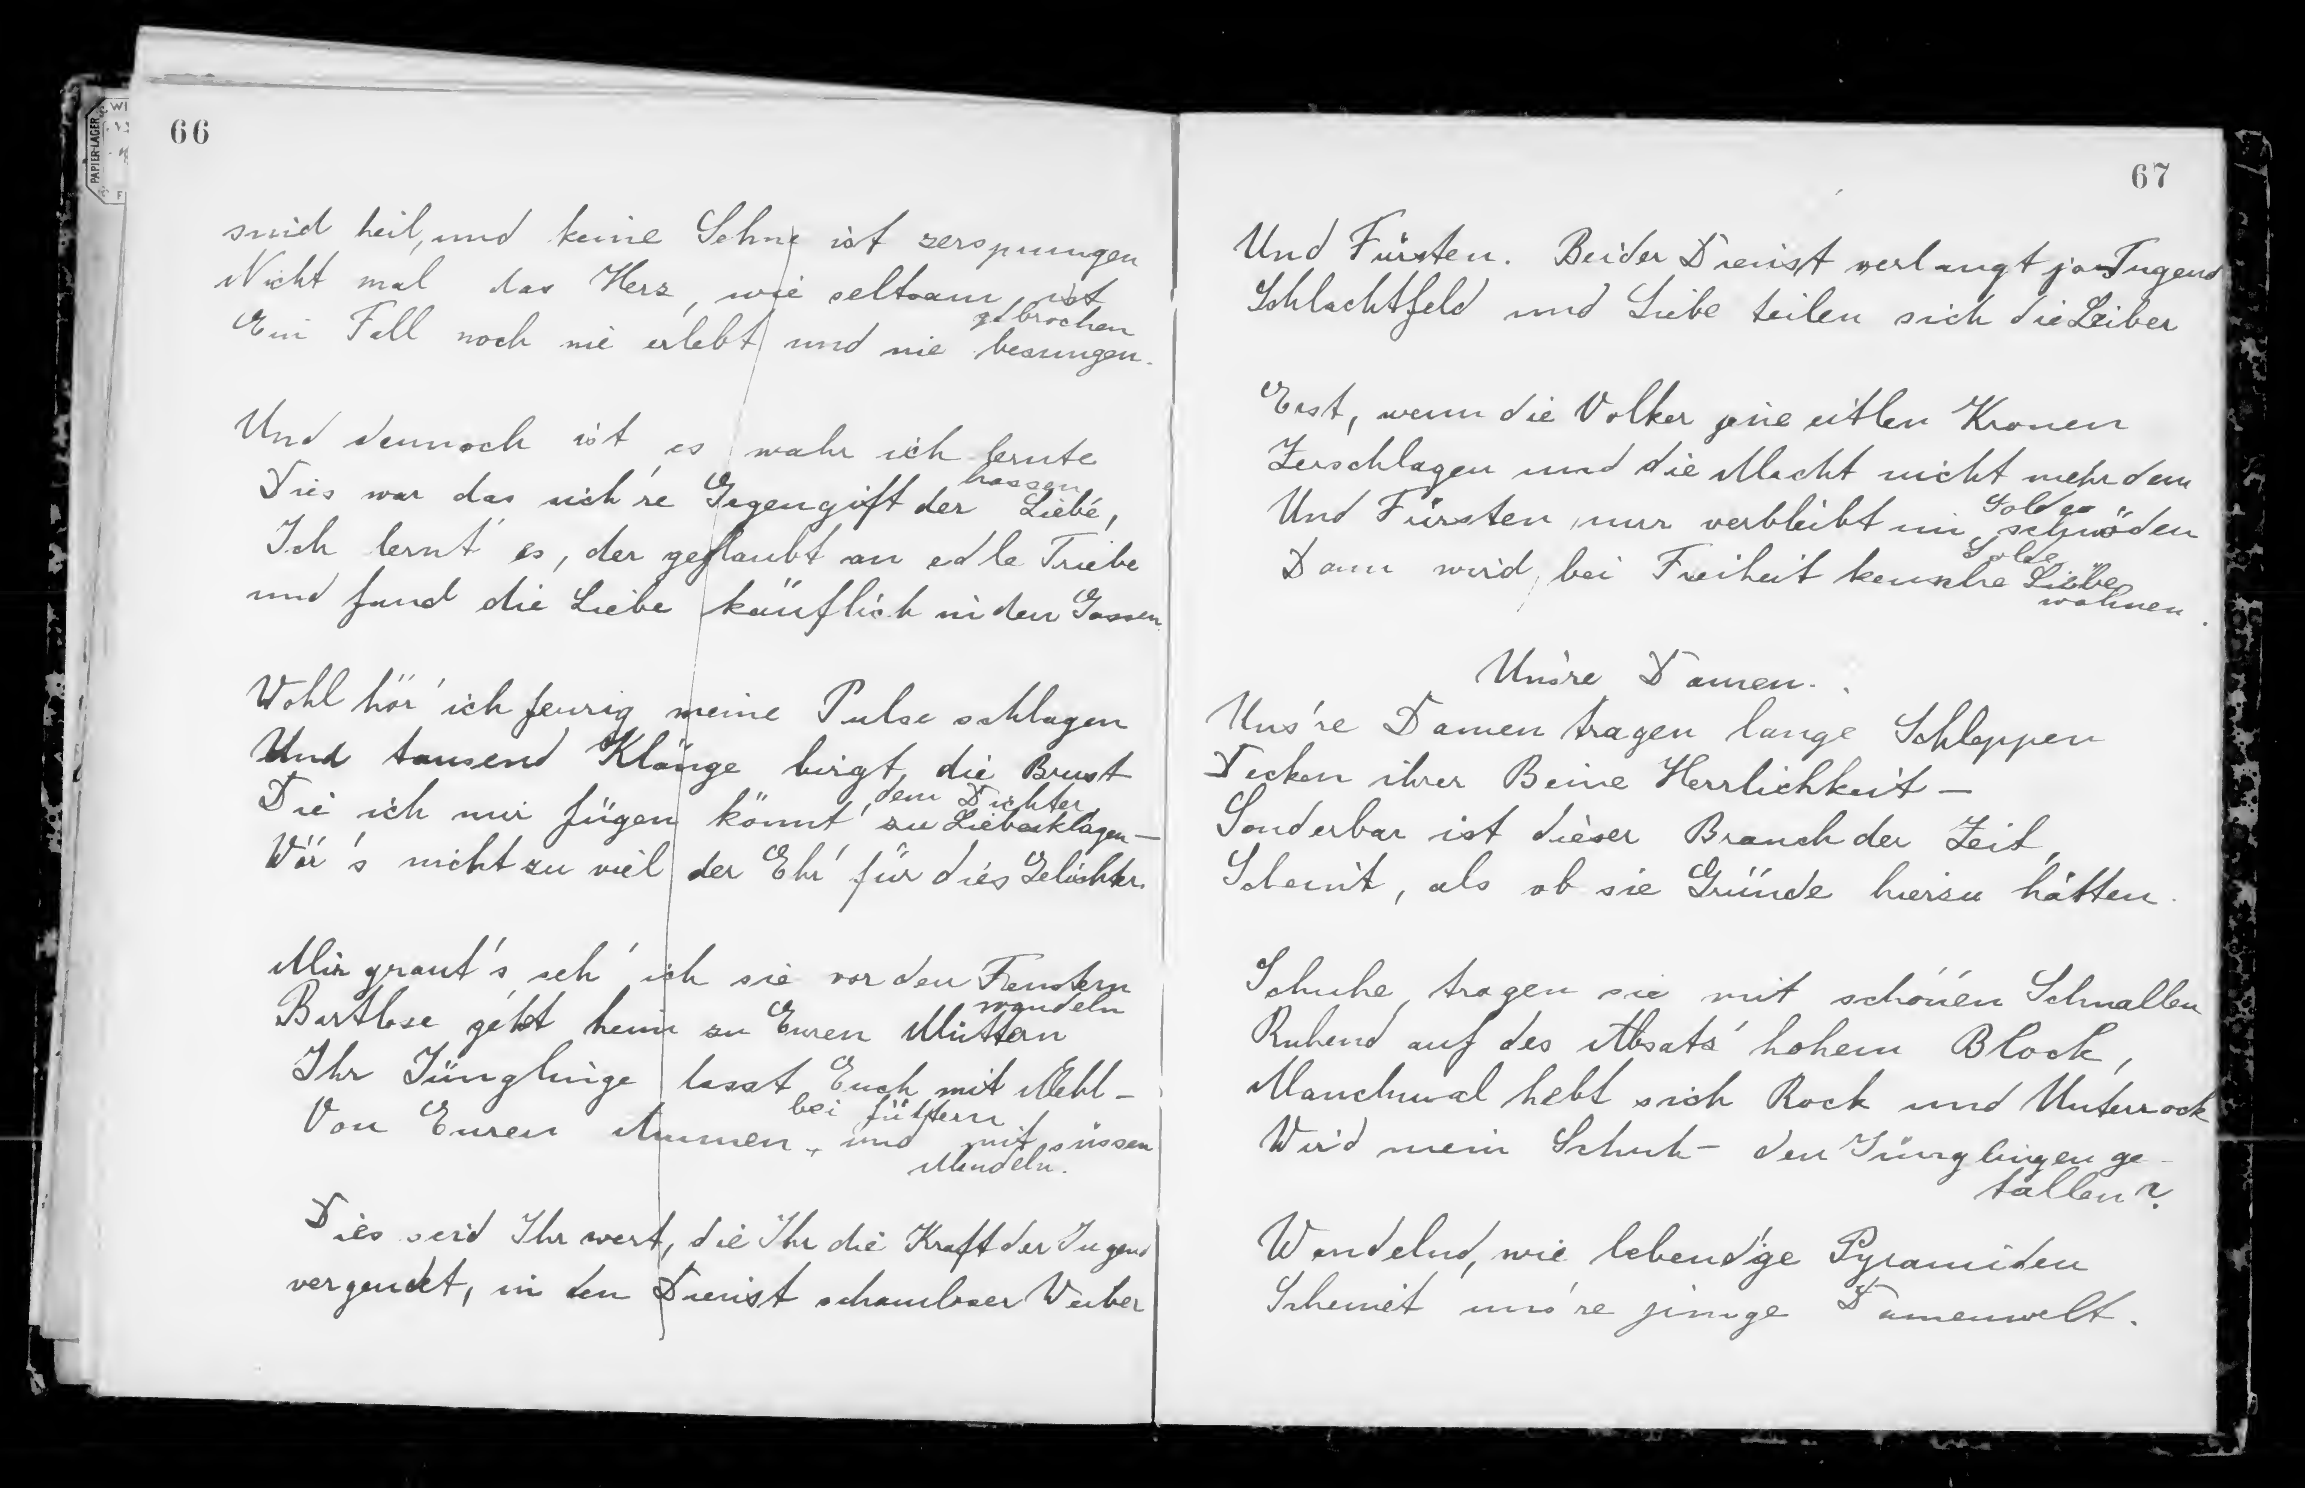 66
sind heil, und keine Sehne ist zersprungen
Nicht mal das Herz, wie seltsam, ist
gebrochen
Ein Fall noch nie erlebt und nie besungen.
Und dennoch ist es wahr ich lernte
hassen
Dies war das sich're Gegengift der Liebe,
Ich lernt' es, der geglaubt an edle Triebe
und fand die Liebe käuflich in den Gassen.
Wohl hör' ich feurig meine Pulse schlagen
Und tausend Klänge birgt die Brust
dem Dichter
Die ich mir fügen könnt' zu Liebesklagen –
Wär's nicht zu viel der Ehr' für dies Gelichter.
Mir graut's seh' ich sie vor den Fenstern
wandeln
Bartlose geht heim zu Euren Müttern
Ihr Jünglinge lasst Euch mit Mehl –
bei füttern
Von Euren Ammen, und mit süssen
Mandeln.
Dies seid Ihr wert, die Ihr die Kraft der Jugend
vergeudet, in den Dienst schamloser Weiber
67
Und Fürsten. Beider Dienst verlangt ja Tugend
Schlachtfeld und Liebe teilen sich die Leiber
Erst, wenn die Völker jene eitlen Kronen
Zerschlagen und die Macht nicht mehr dem
Golde
Und Fürsten nur verbleibt im schnöden
Solde
Dann wird bei Freiheit keusche Liebe
wohnen.
Uns're Damen.
Uns're Damen tragen lange Schleppen
Decken ihrer Beine Herrlichkeit –
Sonderbar ist dieser Brauch der Zeit,
Scheint, als ob sie Gründe hierzu hätten.
Schuhe, tragen sie mit schönen Schnallen
Ruhend auf des Absatz' hohem Block,
Manchmal hebt sich Rock und Unterrock
Wird mein Schuh – den Jünglingen ge-
fallen?
Wandelnd, wie lebend'ge Pyramiden
Scheinet uns're junge Damenwelt.
PAPIER-LAGER